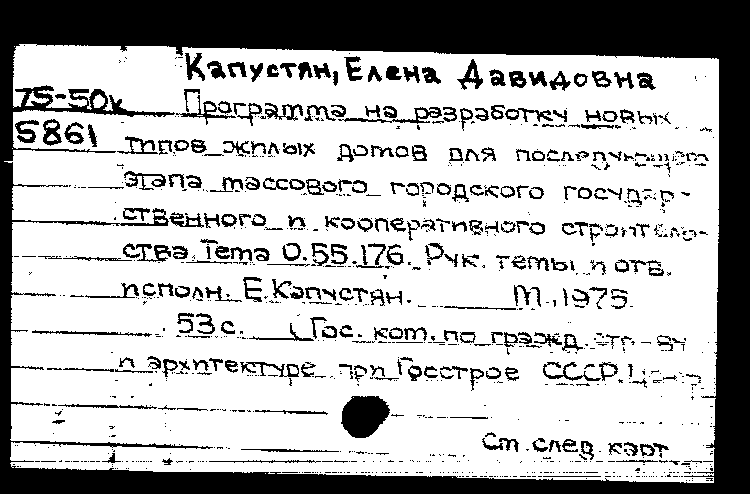 Капустян, Елена Давидовна
75-50к Программа на разработку новых
5861 типов жилых домов для последующего
этапа массового городского государ-
ственного и кооперативного строитель-
ства. Тема О.55.176. Рук. темы и отв.
исполн. Е.Капустян. М., 1975.
53 с. (Гос. ком. по гражд. стр-ву
и архитектуре при Госстрое СССР. Центр
См. след. карт.